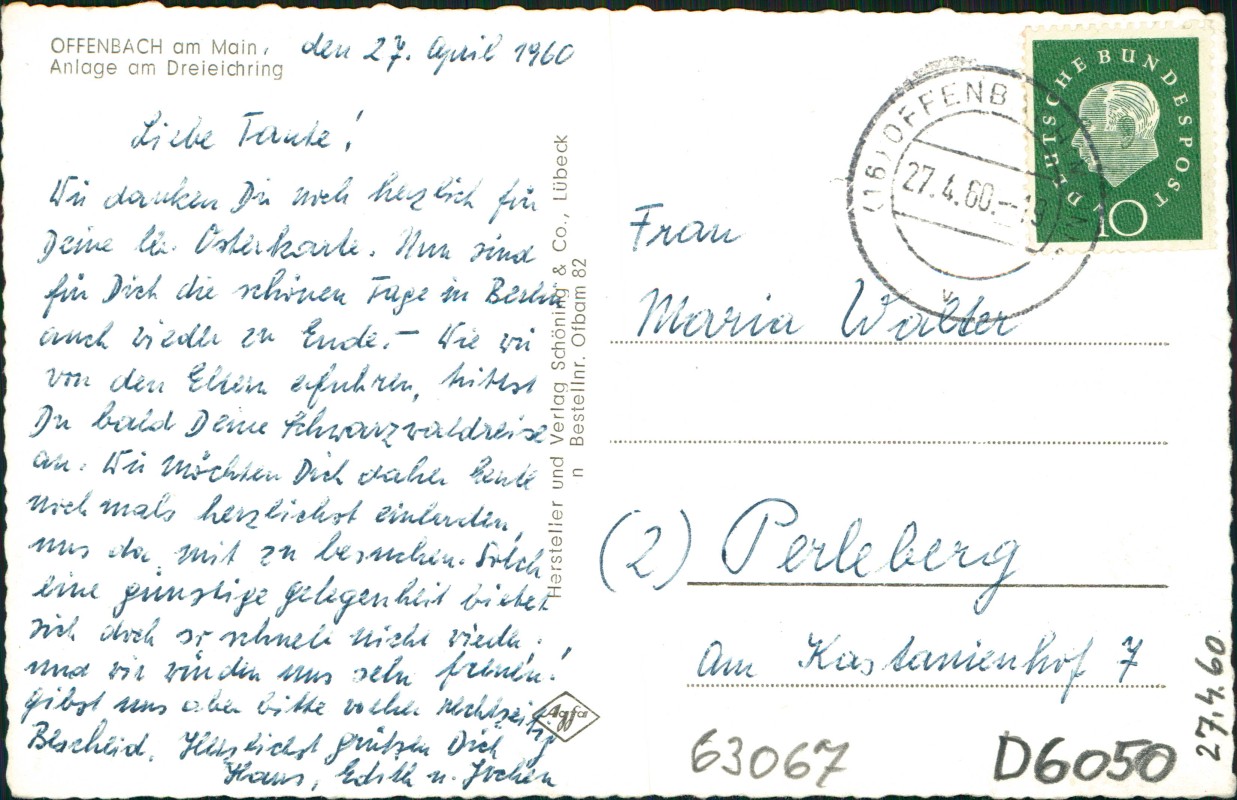 OFFENBACH am Main, den 27. April 1960
Anlage am Dreieichring
Liebe Tante!
Wir danken Dir noch herzlich für
Deine lb. Osterkarte. Nun sind
für Dich die schönen Tage in Berlin
auch wieder zu Ende. – Wie wir
von den Eltern erfuhren, trittst
Du bald Deine Schwarzwaldreise
an. Wir möchten Dich daher heute
nochmals herzlichst einladen,
uns da mit zu besuchen. Solch
eine günstige Gelegenheit bietet
sich doch so schnell nicht wieder,
und wir würden uns sehr freuen!
gibst uns aber bitte vorher rechtzeitig
Bescheid. Herzlichst grüßen Dich
Hans, Edith u. Jochen
Hersteller und Verlag Schöning & Co., Lübeck
n Bestellnr. Ofbam 82
Agfa
(16) OFFENB
27.4.60.–19
v
DEUTSCHE BUNDESPOST
10
Frau
Maria Walter
(2) Perleberg
Am Kastanienhof 7
63067
D6050
27.4.60